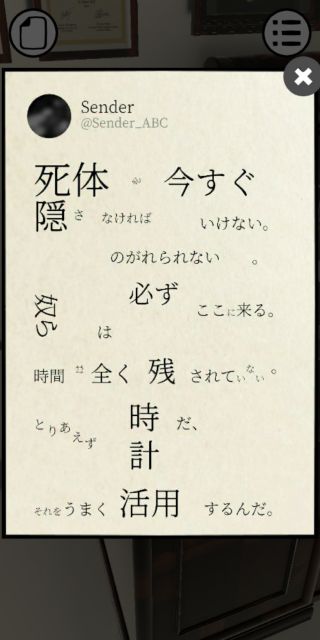 Sender
@Sender_ABC
死体を今すぐ
隠さなければいけない。
のがれられない。
奴らは必ずここに来る。
時間は全く残されていない。
とりあえず時計だ、
それをうまく活用するんだ。